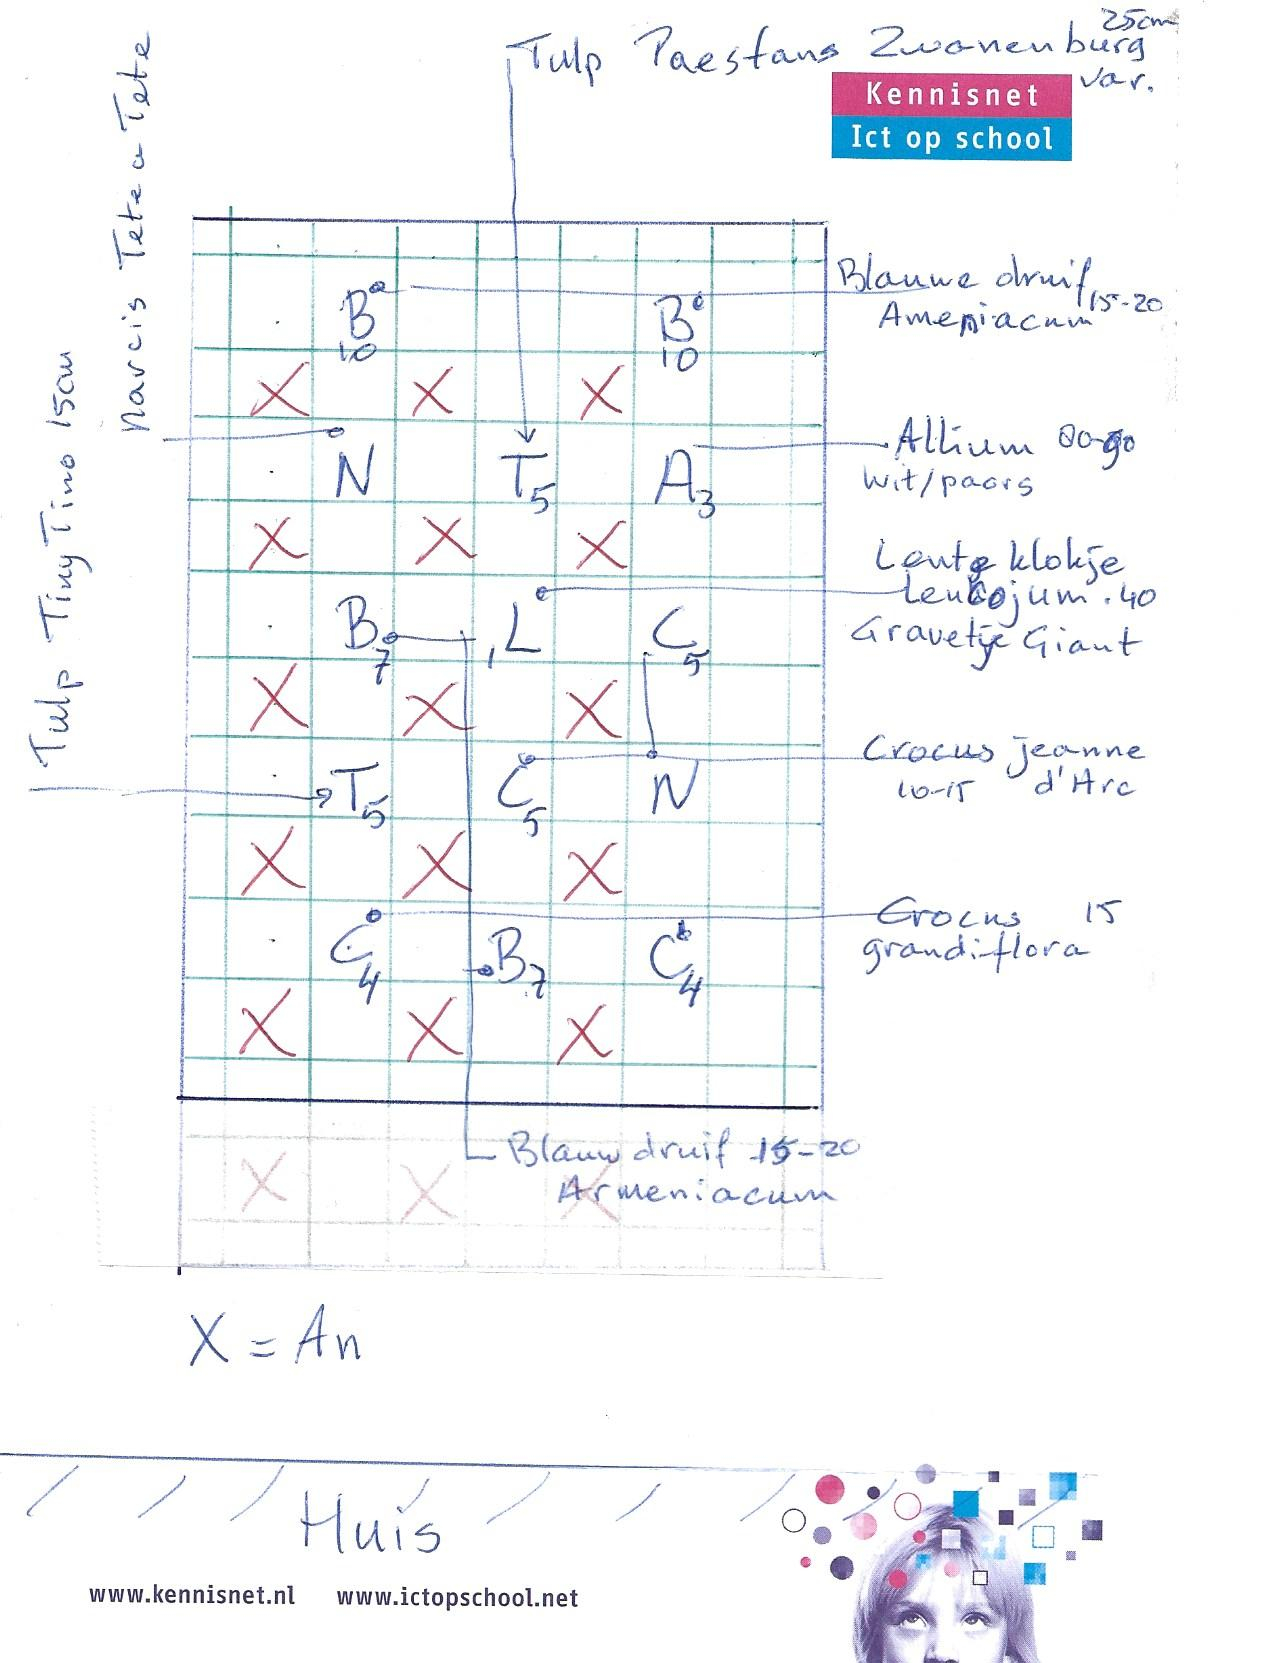 25cm
Tulp Praestans Zwanenburg
var.
Kennisnet
Ict op school
Narcis Tete a Tete
Tulp Tiny Timo 15cm
Blauwe druif 15-20
Ameniacum
B B
10 10
X X X
Allium 80-90
wit/paars
N T5 A3
X X X
Leutje klokje
Leucojum . 40
Gravetje Giant
B7 1 L C5
X X X
Crocus jeanne
10-15 d'Arc
T5 C5 N
X X X
Crocus 15
grandiflora
C4 B7 C4
X X X
Blauw druif 15-20
Armeniacum
X X X
X = An
Huis
www.kennisnet.nl www.ictopschool.net